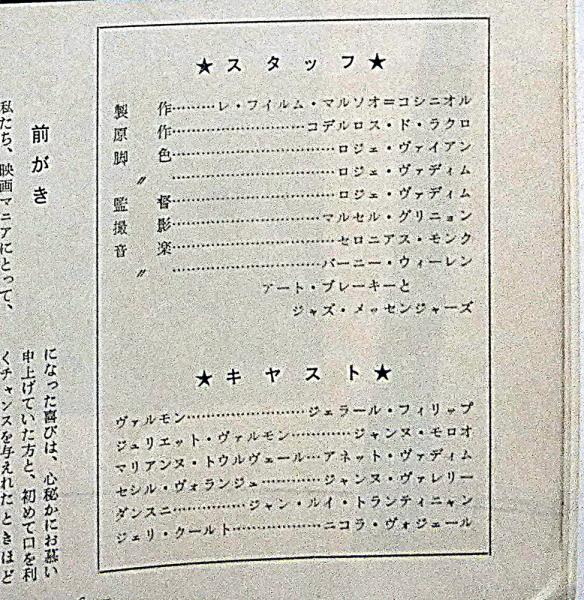 ★スタッフ★
製作………レ・フイルム・マルソオ＝コシニオル
原作……………………コデルロス・ド・ラクロ
脚色……………………ロジェ・ヴァイアン
〃……………………ロジェ・ヴァディム
監督……………………ロジェ・ヴァディム
撮影……………………マルセル・グリニョン
音楽……………………セロニアス・モンク
〃……………………バーニー・ウィーレン
アート・ブレーキーと
ジャズ・メッセンジャーズ
★キャスト★
ヴァルモン……………………ジェラール・フィリップ
ジュリエット・ヴァルモン…………ジャンヌ・モロオ
マリアンヌ・トウルヴェール…アネット・ヴァディム
セシル・ヴォランジュ…………ジャンヌ・ヴァレリー
ダンスニ…………ジャン・ルイ・トランティニャン
ジェリ・クールト………………ニコラ・ヴォジェール
前がき
私たち、映画マニアにとって、
になった喜びは、心秘かにお慕い
申上げていた方と、初めて口を利
くチャンスを与えれたときほど